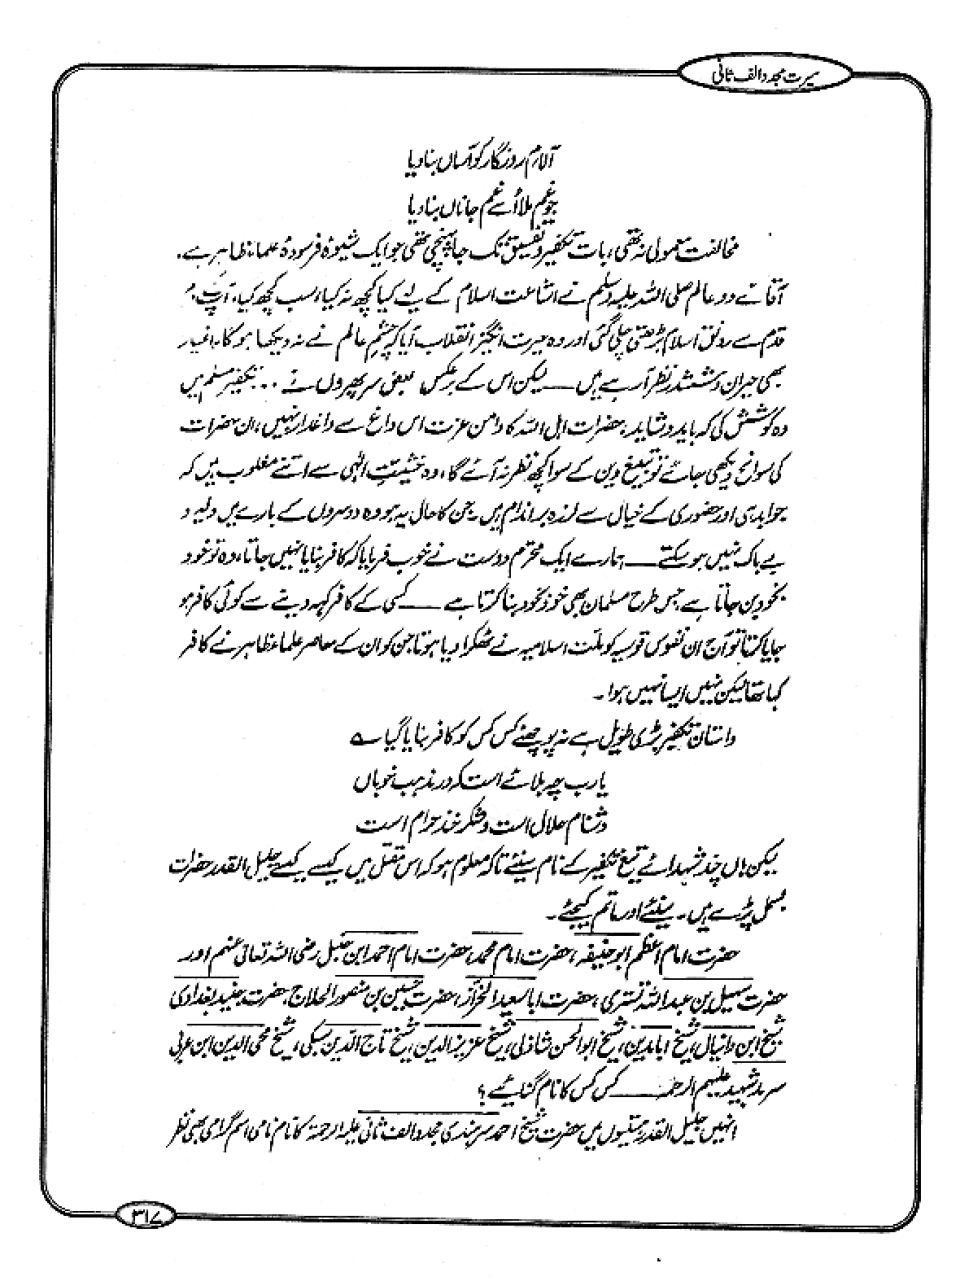 سیرت مجدد الف ثانی
آلامِ روزگار کو آساں بنا دیا
جو غم ملا اُسے غمِ جاناں بنا دیا
مخالفت معمولی نہ تھی، بات تکفیر و تفسیق تک جا پہنچی تھی جو ایک شیوۂ فرسودۂ علماء ظاہر ہے.
آقائے دو عالم صلی اللہ علیہ وسلم نے اشاعت اسلام کے لیے کیا کچھ نہ کیا، سب کچھ کیا، آپ کے
قدم سے رونقِ اسلام بڑھتی چلی گئی اور وہ حیرت انگیز انقلاب آیا کہ چشمِ عالم نے نہ دیکھا ہوگا، اغیار
بھی حیران و ششدر نظر آرہے ہیں ــــ لیکن اس کے برعکس بعض سرپھروں نے ... تکفیرِ مسلم میں
وہ کوشش کی کہ باید و شاید، حضرات اہل اللہ کا دامن عزت اس داغ سے داغدار نہیں، ان حضرات
کی سوانح دیکھی جائے تو تبلیغ دین کے سوا کچھ نظر نہ آئے گا، وہ خشیتِ الٰہی سے اتنے مغلوب ہیں کہ
جوابدہی اور حضوری کے خیال سے لرزہ براندام ہیں۔ جن کا حال یہ ہو وہ دوسروں کے بارے میں دلیر و
بے باک نہیں ہو سکتے ــــ ہمارے ایک محترم دوست نے خوب فرمایا کہ کافر بنایا نہیں جاتا، وہ تو خود
بخود بن جاتا ہے جس طرح مسلمان بھی خود بخود بنا کرتا ہے ــــ کسی کے کافر کہہ دینے سے کوئی کافر ہو
جایا کرتا تو آج ان نفوس قدسیہ کو ملت اسلامیہ نے ٹھکرا دیا ہوتا جن کو ان کے معاصر علماء ظاہر نے کافر
کہا تھا لیکن نہیں ایسا نہیں ہوا۔
داستان تکفیر بڑی طویل ہے نہ پوچھئے کس کس کو کافر بنایا گیا ؎
یارب چہ بلائے است کہ در مذہب خوباں
دشنام حلال است و شکر خند حرام است
لیکن ہاں چند شہدائے تیغِ تکفیر کے نام سنیئے تاکہ معلوم ہو کہ اس مقتل میں کیسے کیسے جلیل القدر حضرات
بسمل پڑے ہیں۔ سنیئے اور ماتم کیجئے۔
حضرت امام اعظم ابو حنیفہ، حضرت امام محمد، حضرت امام احمد ابن حنبل رضی اللہ تعالیٰ عنہم اور
حضرت سہیل بن عبداللہ تستری، حضرت ابا سعید الخراز، حضرت حسین بن منصور الحلاج، حضرت جنید بغدادی
شیخ ابن دانیال، شیخ ابامدین، شیخ ابوالحسن شاذلی، شیخ عزیز الدین، شیخ تاج الدین سبکی، شیخ محی الدین ابن عربی
سرمد شہید علیہم الرحمہ ــــ کس کس کا نام گنائیے؟
انہیں جلیل القدر ہستیوں میں حضرت شیخ احمد سرہندی مجدد الف ثانی علیہ الرحمۃ کا نام نامی اسم گرامی بھی نظر
۳۱۷